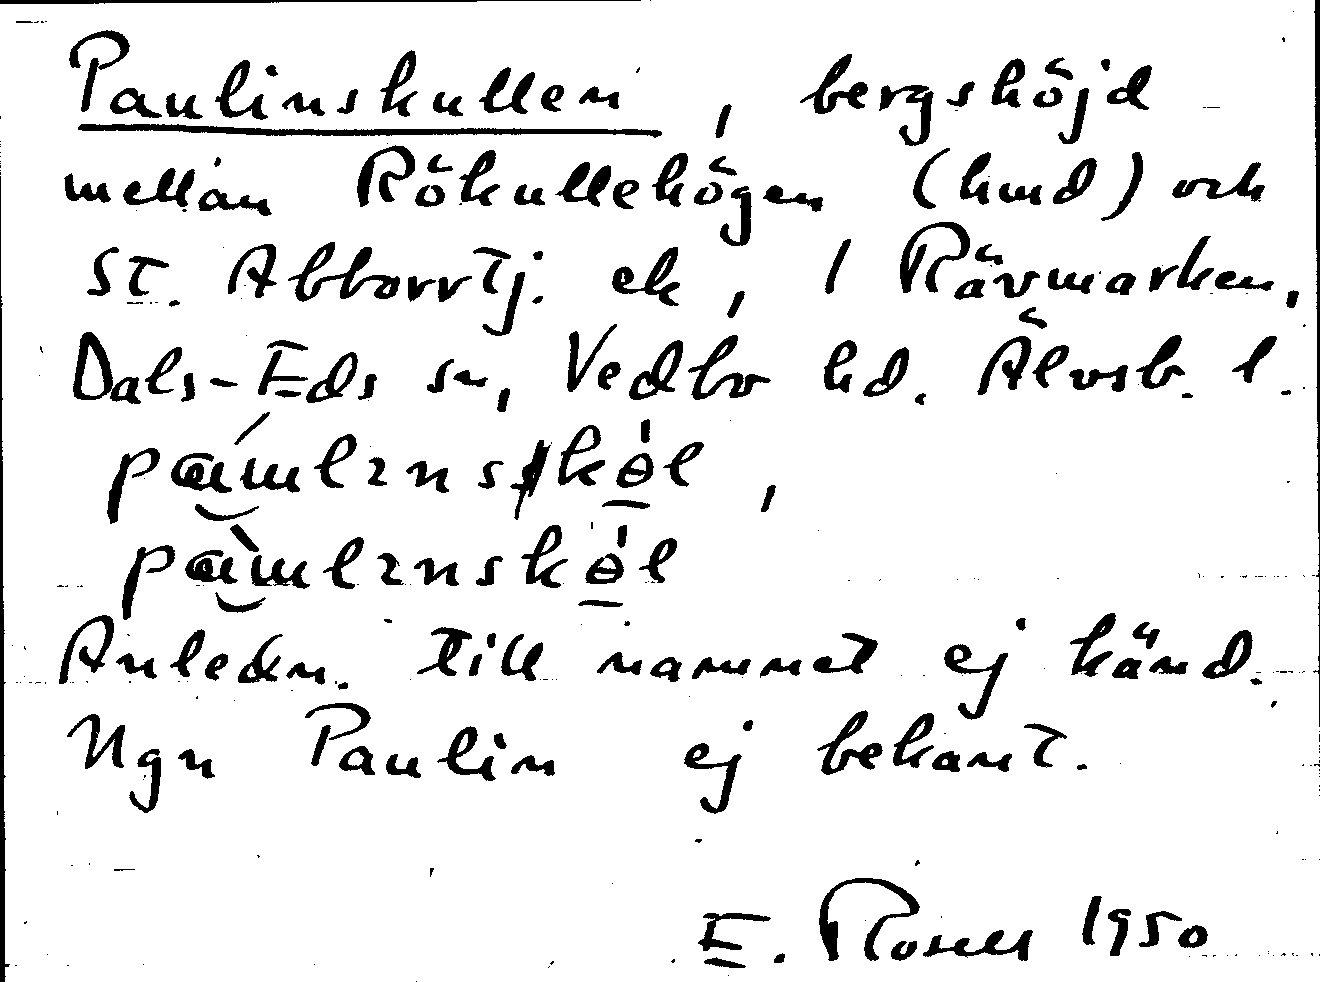 Paulinskullen, bergshöjd
mellan Rökullehögen (hmd) och
St. Abborrtj. ek, i Rävmarken,
Dals-Eds sn, Vedbo hd. Älvsb. l.
Anledn. till namnet ej känd.
Ngn Paulin ej bekant.
E. Rosell 1950